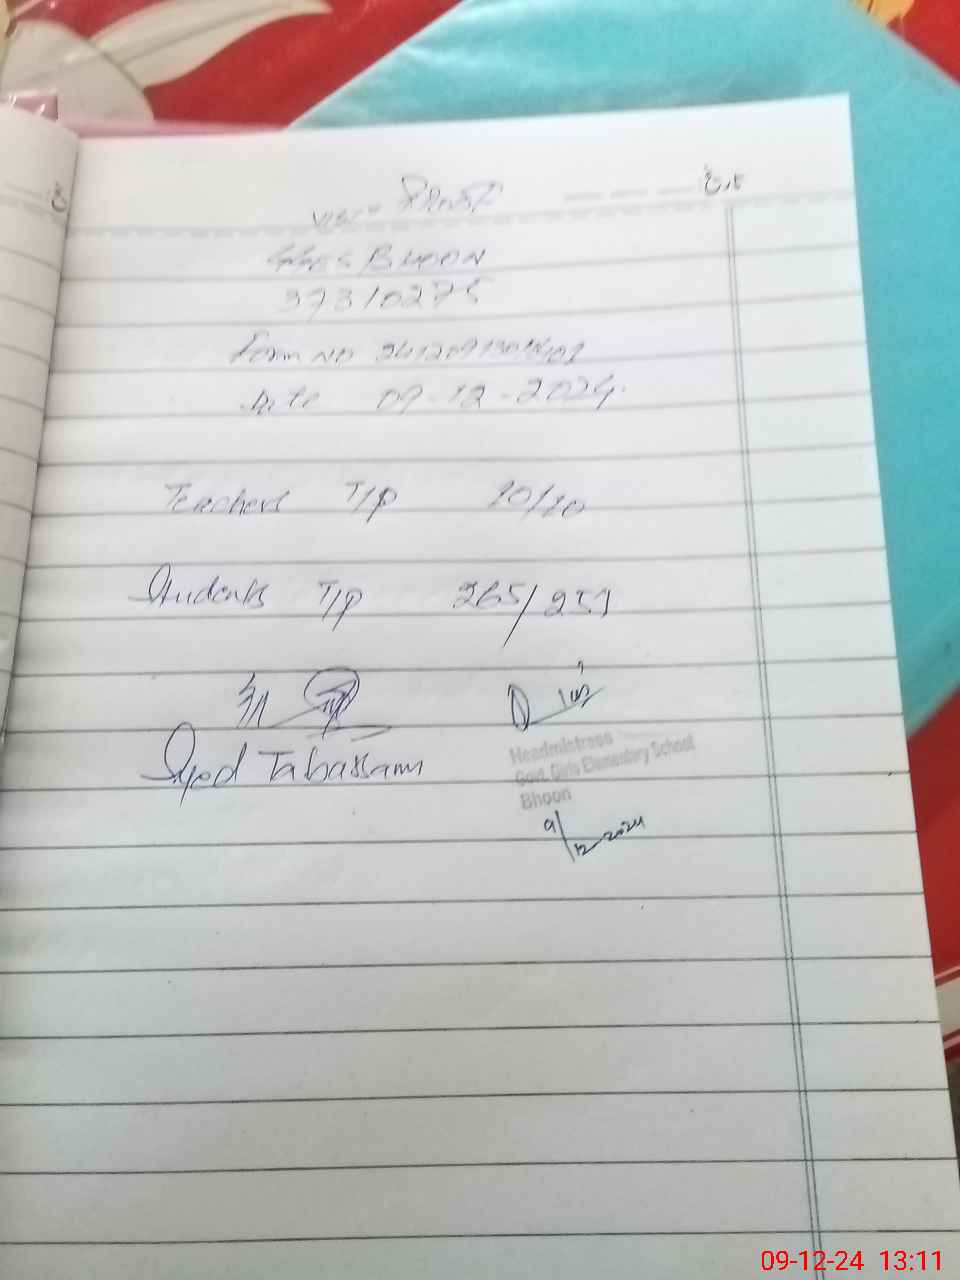 Visit Proof
GGES BHOON
37310275
Form NO
Date 09-12-2024.
Teachers T/P 10/10
Students T/P 265/251
Syed Tabassam
Headmistress
Govt. Girls Elementary School
Bhoon
9/12-2024
09-12-24 13:11